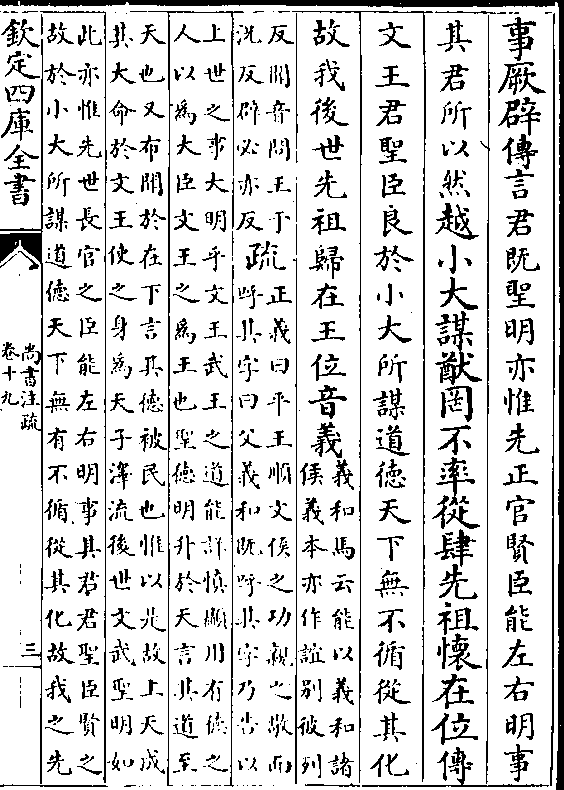 事厥辟傳言君既聖明亦惟先正官賢臣能左右明事
其君所以然越小大謀猷罔不率從肆先祖懷在位傳
文王君聖臣良於小大所謀道德天下無不循從其化
故我後世先祖歸在王位音義
義和馬云能以義和諸
侯義本亦作誼別彼列
反聞音問王于
況反辟必亦反
疏
正義曰平王順文侯之功親之敬而
呼其字曰父義和既呼其字乃告以
上世之事大明乎文王武王之道能詳慎顯用有德之
人以為大臣文王之為王也聖德明升於天言其道至
天也又布聞於在下言其德被民也惟以是故上天成
其大命於文王使之身為天子澤流後世文武聖明如
此亦惟先世長官之臣能左右明事其君君聖臣賢之
故於小大所謀道德天下無有不循從其化故我之先
欽定四庫全書
尚書注疏
卷十九
三